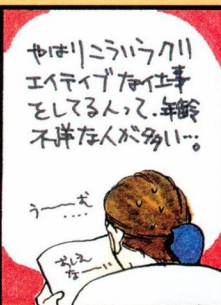 やはりこういうクリ
エイティブな仕事
をしてる人って、年齢
不詳な人が多い…。
うーむ
……
おしえ
なーい